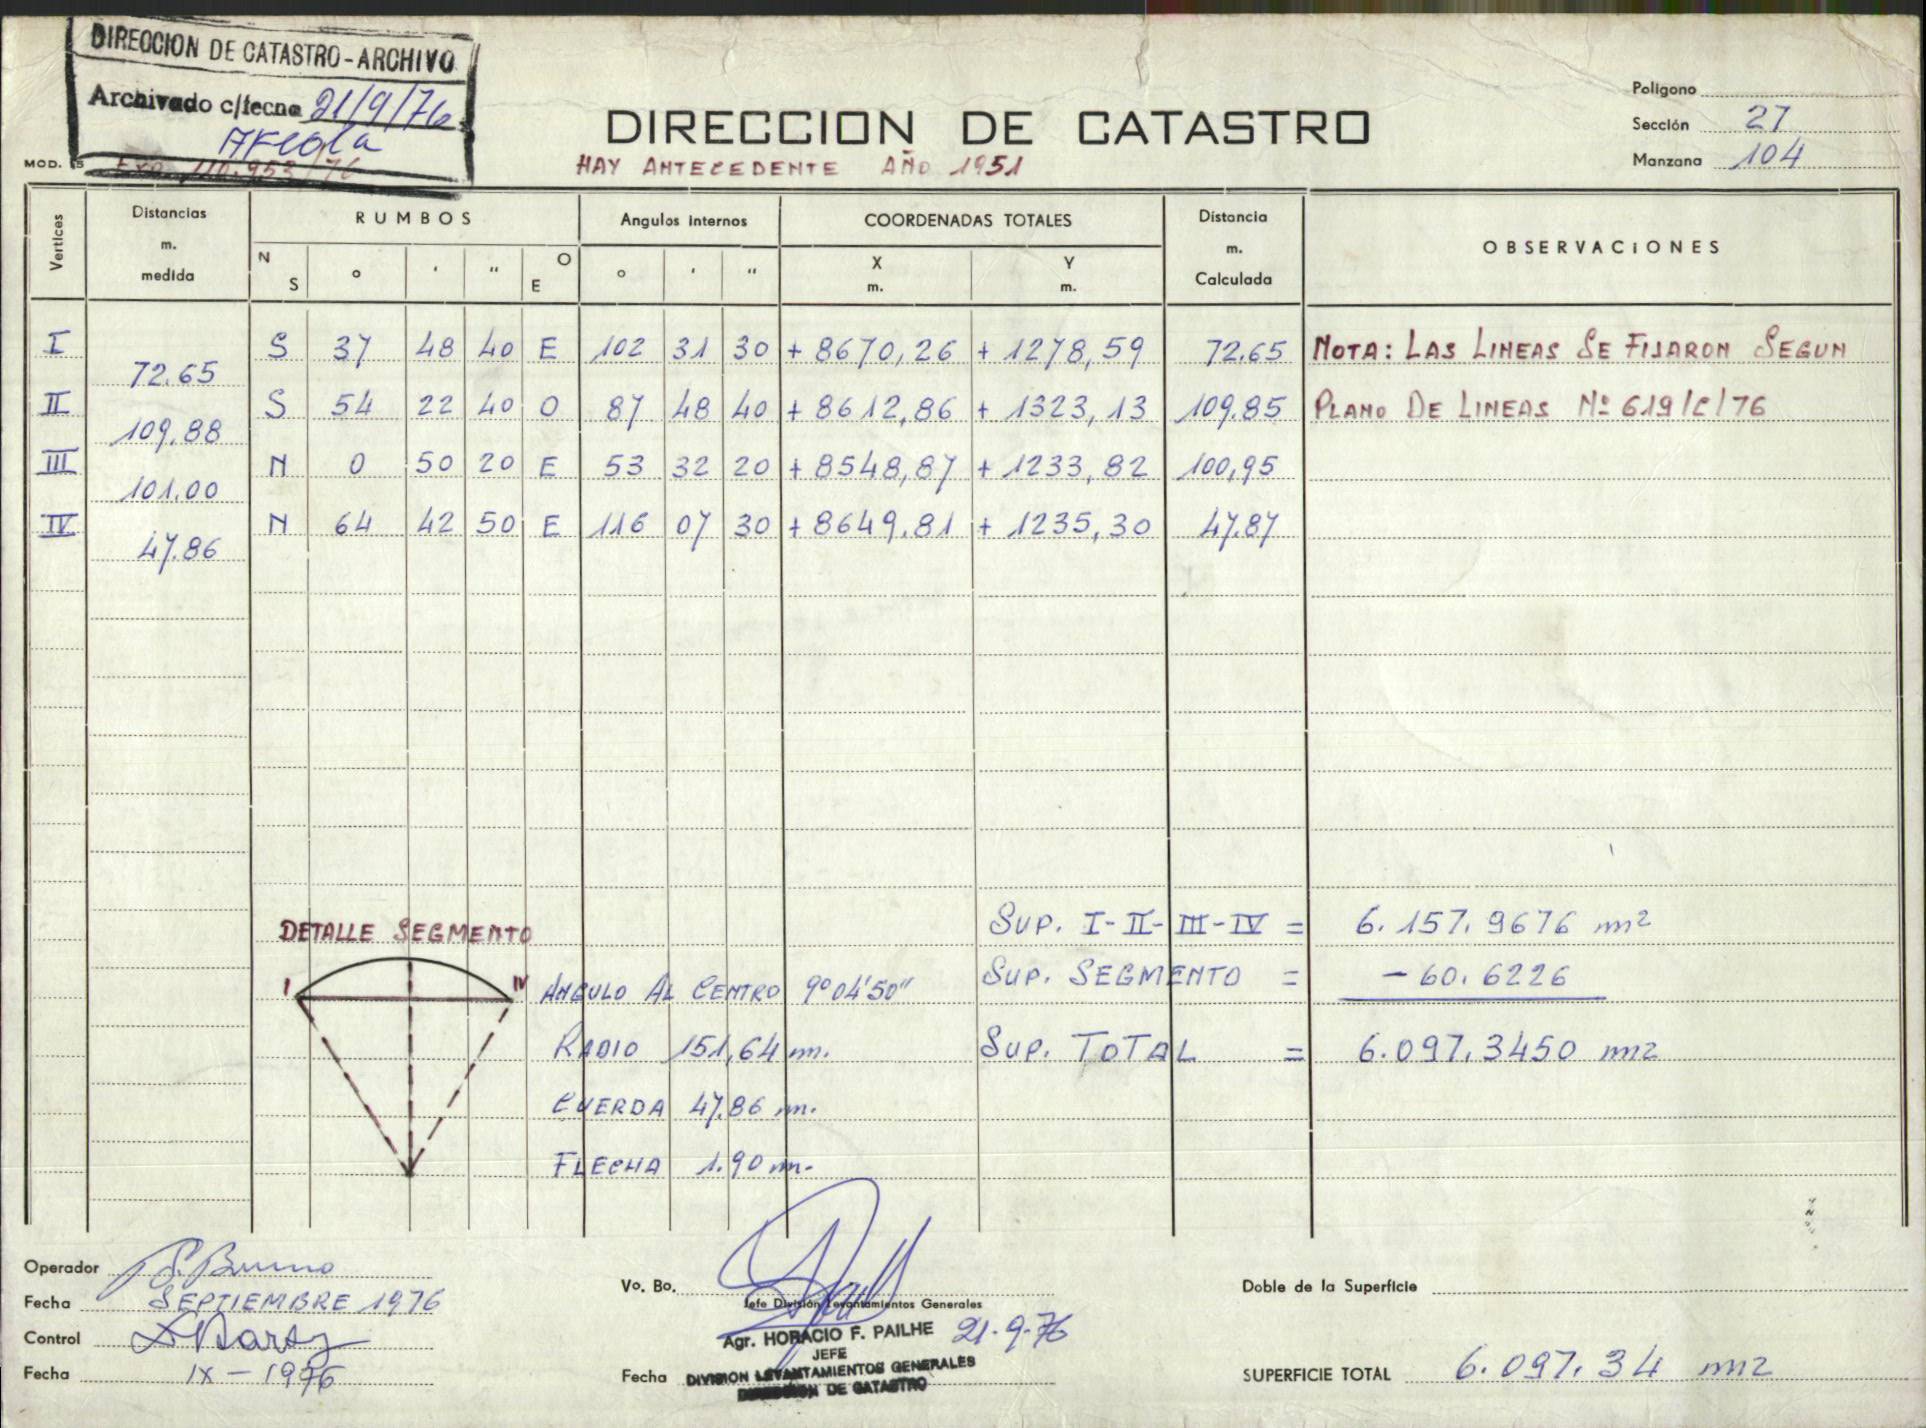 DIRECCION DE CATASTRO - ARCHIVO
Archivado c/fecha 21/9/76
MOD. 15
Exp. 110.953/76
DIRECCION DE CATASTRO
HAY ANTECEDENTE AÑO 1951
Polígono
Sección 27
Manzana 104
Vertices Distancias m. medida RUMBOS Angulos Internos COORDENADAS TOTALES Distancia m. Calculada OBSERVACiONES
N S ° ' " O E ° ' " X m. Y m.
I S 37 48 40 E 102 31 30 + 8670,26 + 1278,59 72.65 NOTA: LAS LINEAS SE FIJARON SEGUN
72.65
II S 54 22 40 O 87 48 40 + 8612,86 + 1323,13 109.85 PLANO DE LINEAS Nº 619/C/76
109.88
III N 0 50 20 E 53 32 20 + 8548,87 + 1233,82 100,95
101.00
IV N 64 42 50 E 116 07 30 + 8649.81 + 1235,30 47.87
47.86
DETALLE SEGMENTO
I IV
ANGULO AL CENTRO 9°04'50"
RADIO 151,64 m.
CUERDA 47.86 m.
FLECHA 1.90 m.
SUP. I-II-III-IV = 6.157.9676 m2
SUP. SEGMENTO = - 60.6226
SUP. TOTAL = 6.097.3450 m2
Operador S. Bruno
Fecha SEPTIEMBRE 1976
Control
Fecha IX - 1976
Vo. Bo.
Jefe División Levantamientos Generales
Agr. HORACIO F. PAILHE 21-9-76
JEFE
Fecha DIVISION LEVANTAMIENTOS GENERALES
DIRECCION DE CATASTRO
Doble de la Superficie
SUPERFICIE TOTAL 6.097.34 m2